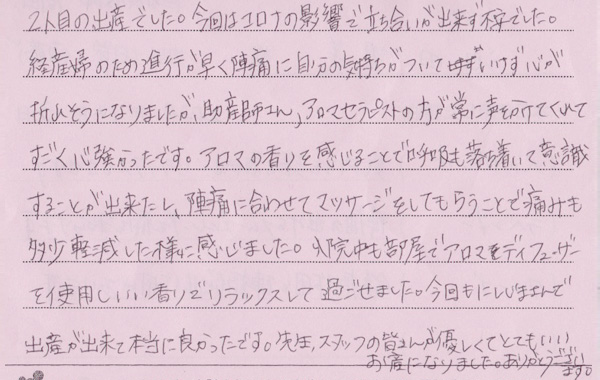 2人目の出産でした。今回はコロナの影響で立ち合いが出来ず不安でした。
経産婦のため進行が早く陣痛に自分の気持ちがついていけず心が
折れそうになりましたが、助産師さん、アロマセラピストの方が常に声をかけてくれて
すごく心強かったです。アロマの香りを感じることで呼吸も落ち着いて意識
することが出来たし、陣痛に合わせてマッサージをしてもらうことで痛みも
多少軽減した様に感じました。入院中も部屋でアロマをディフューザー
を使用しいい香りでリラックスして過ごせました。今回もにしじまさんで
出産が出来て本当に良かったです。先生、スタッフの皆さんが優しくてとてもいい
お産になりました。ありがとうござい
ます。